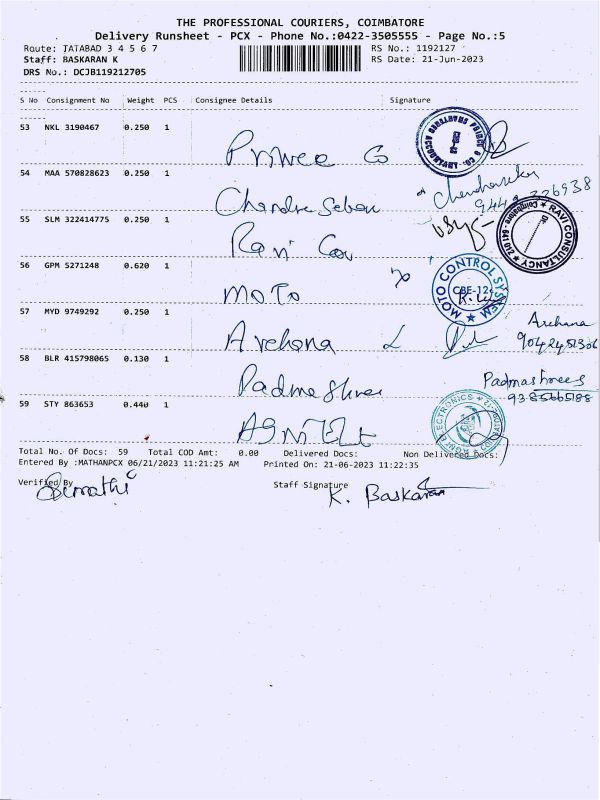 THE PROFESSIONAL COURIERS, COIMBATORE
Delivery Runsheet - PCX - Phone No.:0422-3505555 - Page No.:5
Route: TATABAD 3 4 5 6 7
RS No.: 1192127
Staff: BASKARAN K
RS Date: 21-Jun-2023
DRS No.: DCJB119212705
S No Consignment No Weight PCS Consignee Details Signature
53 NKL 3190467 0.250 1
Prince Co
54 MAA 570828623 0.250 1
Chandrasekar
55 SLM 322414775 0.250 1
Ravi Cou
RAVI CONSULTANCY ★ Coimbatore - 641 012
56 GPM 5271248 0.620 1
MOTO
MOTO CONTROL SYSTEM ★ CBE-12
57 MYD 9749292 0.250 1
Archana
Archana
9042451306
58 BLR 415798065 0.130 1
Padma Shree
Padmashrees
59 STY 863653 0.440 1
Total No. Of Docs: 59 Total COD Amt: 0.00 Delivered Docs: Non Delivered Docs:
Entered By :MATHANPCX 06/21/2023 11:21:25 AM Printed On: 21-06-2023 11:22:35
Verified By
Staff Signature
K. Baskaran